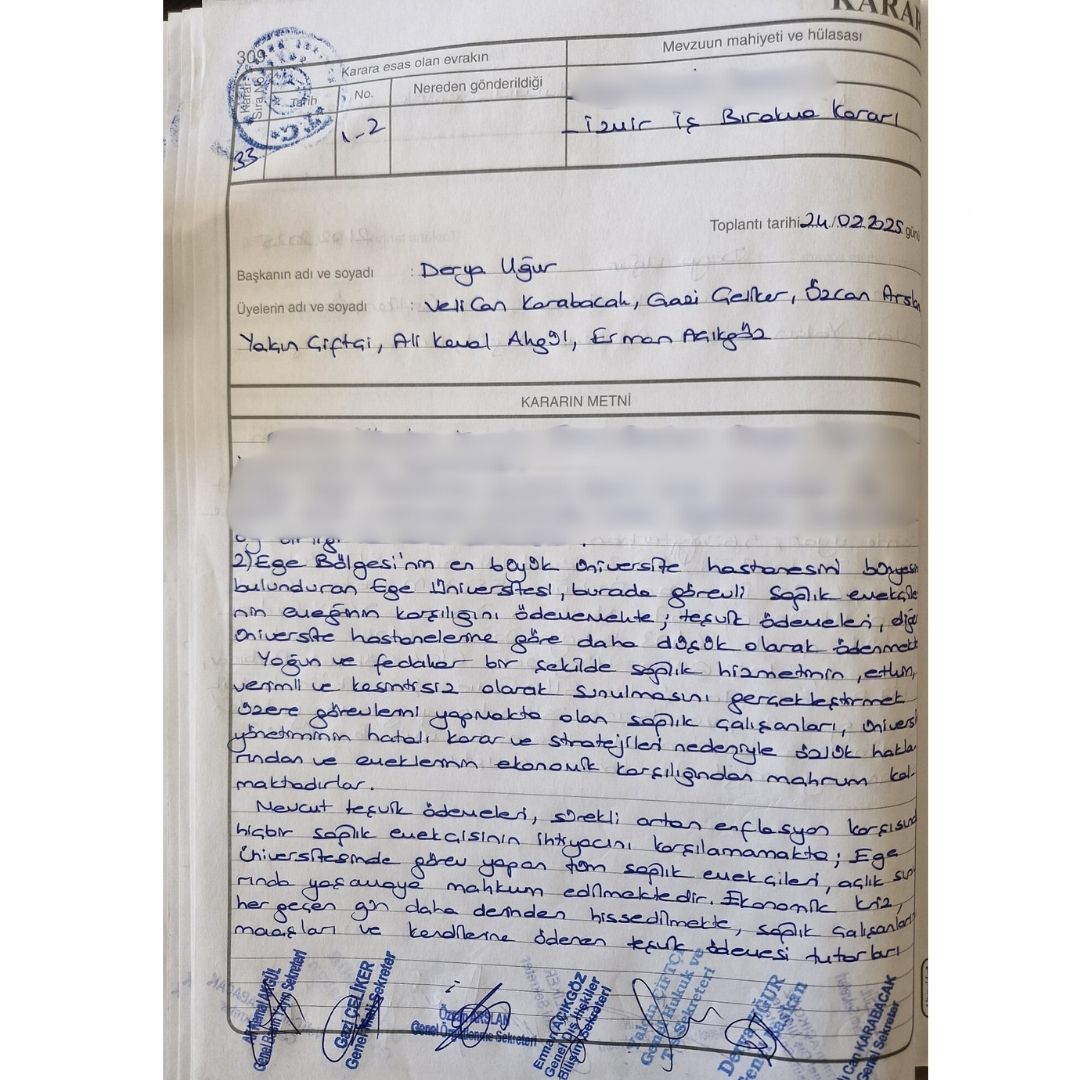 KARAR
309
Karar Sıra No.
Karara esas olan evrakın
Mevzuun mahiyeti ve hülasası
Tarih
No.
Nereden gönderildiği
33
1-2
- İzmir iş Bırakma Kararı
Toplantı tarihi 24/02.2025 günü
Başkanın adı ve soyadı : Derya Uğur
Üyelerin adı ve soyadı : Veli Can Karabacak, Gazi Çeliker, Özcan Arslan
Yalçın Çiftçi, Ali Kemal Akgül, Erman Açıkgöz
KARARIN METNİ
2) Ege Bölgesi'nin en büyük üniversite hastanesini bünyesin
bulunduran Ege Üniversitesi, burada görevli sağlık emekçile
nin emeğinin karşılığını ödememekte; teşvik ödemeleri, diğe
üniversite hastanelerine göre daha düşük olarak ödenmekt
Yoğun ve fedakar bir şekilde sağlık hizmetinin, etkin,
verimli ve kesintisiz olarak sunulmasını gerçekleştirmek
üzere görevlerini yapmakta olan sağlık çalışanları, üniversi
yönetiminin hatalı karar ve stratejileri nedeniyle özlük hakla
rından ve emeklerinin ekonomik karşılığından mahrum kal-
maktadırlar.
Mevcut teşvik ödemeleri, sürekli artan enflasyon karşısınd
hiçbir sağlık emekçisinin ihtiyacını karşılamamakta; Ege
Üniversitesinde görev yapan tüm sağlık emekçileri, açlık sını
rında yaşamaya mahkum edilmektedir. Ekonomik kriz,
her geçen gün daha derinden hissedilmekte, sağlık çalışanları
maaşları ve kendilerine ödenen teşvik ödemesi tutarları
Ali Kemal AKGÜL
Genel Basın Yayın Sekreteri
Gazi ÇELİKER
Genel Mali Sekreter
Özcan ARSLAN
Genel Örgütlenme Sekreteri
Erman AÇIKGÖZ
Genel Dış İlişkiler
Bilişim Sekreteri
Yalçın ÇİFTÇİ
Genel Hukuk ve
Sekreteri
Derya UĞUR
Genel Başkan
Can KARABACAK
Genel Sekreter